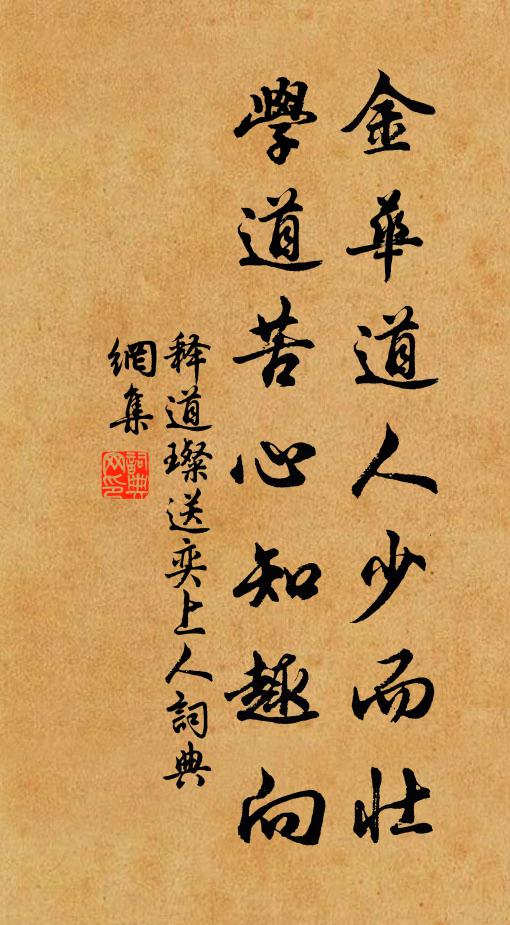 金華道人少而壮
學道苦心知趣向
释道璨送奕上人詞典
網集
詞典
网印